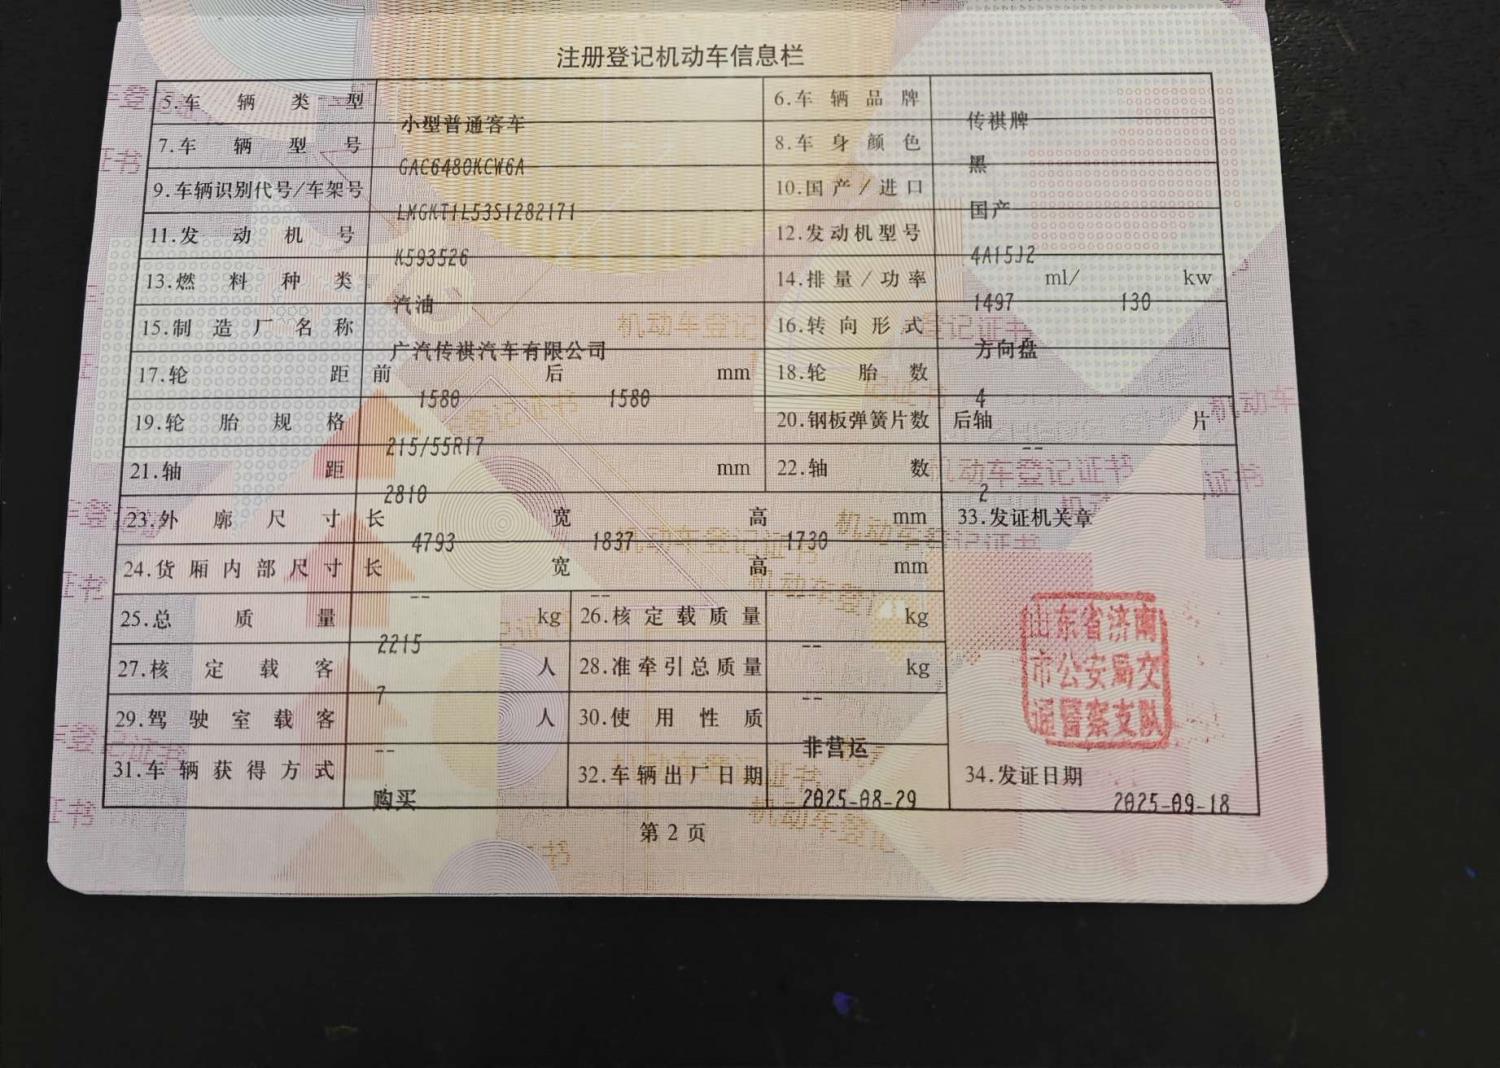 注册登记机动车信息栏
5.车辆类型 小型普通客车 6.车辆品牌 传祺牌
7.车辆型号 GAC6480KCW6A 8.车身颜色 黑
9.车辆识别代号/车架号 LMGKT1L53S1282171 10.国产/进口 国产
11.发动机号 K593526 12.发动机型号 4A15J2
13.燃料种类 汽油 14.排量/功率 1497 ml/ 130 kw
15.制造厂名称 广汽传祺汽车有限公司 16.转向形式 方向盘
17.轮距 前 1580 后 1580 mm 18.轮胎数 4
19.轮胎规格 215/55R17 20.钢板弹簧片数 后轴 -- 片
21.轴距 2810 mm 22.轴数 2
23.外廓尺寸 长 4793 宽 1837 高 1730 mm 33.发证机关章
24.货厢内部尺寸 长 -- 宽 -- 高 mm
25.总质量 2215 kg 26.核定载质量 -- kg
27.核定载客 7 人 28.准牵引总质量 -- kg
29.驾驶室载客 -- 人 30.使用性质 非营运
31.车辆获得方式 购买 32.车辆出厂日期 2025-08-29 34.发证日期 2025-09-18
山东省济南
市公安局交
通警察支队
第2页